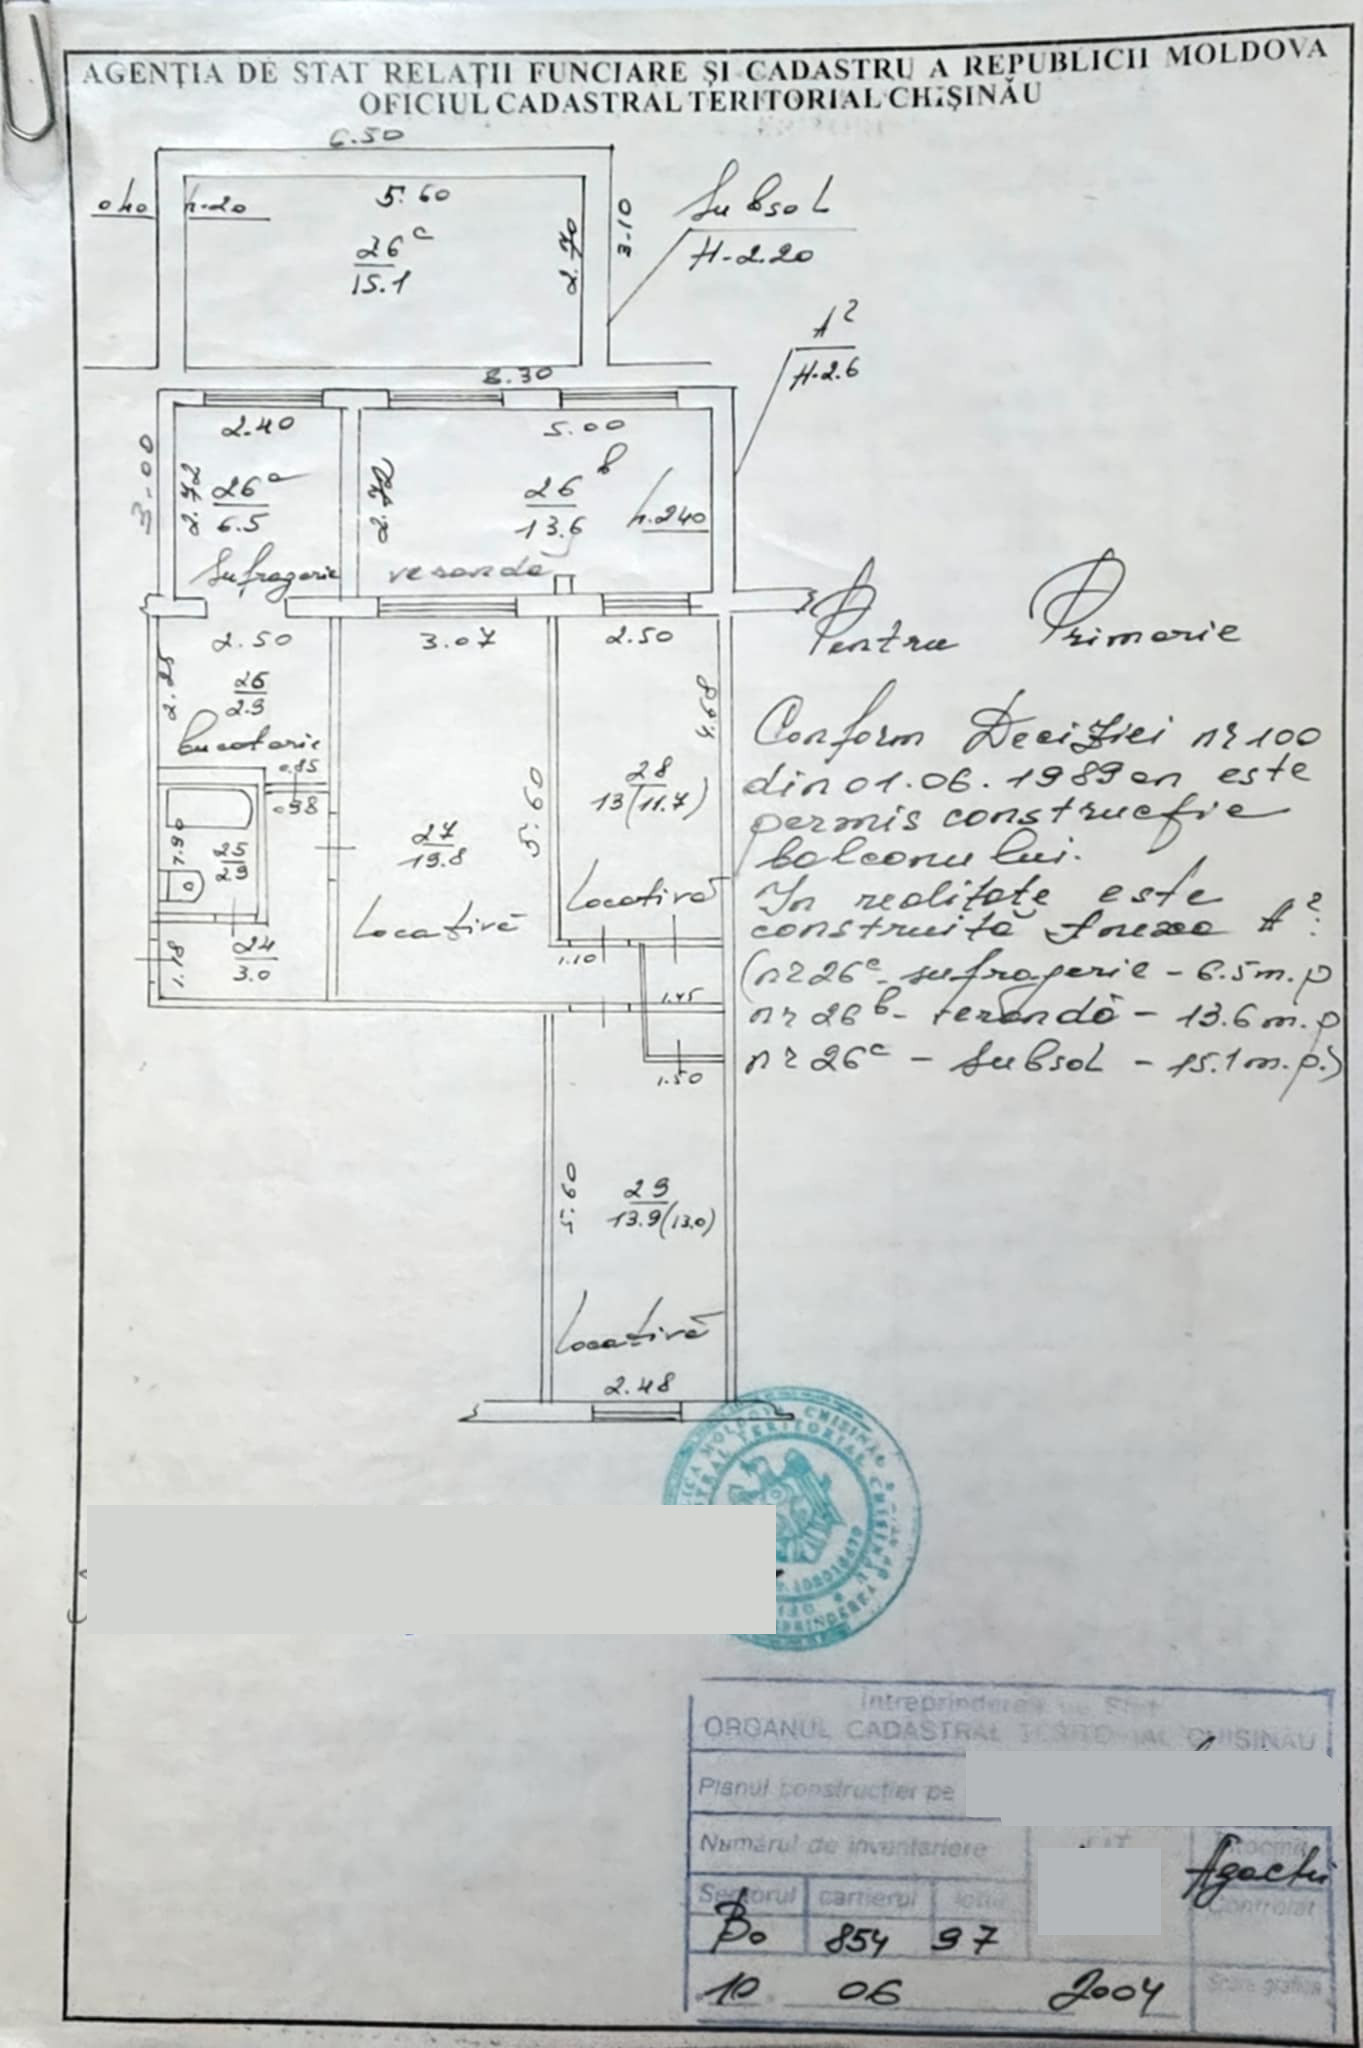 AGENȚIA DE STAT RELAȚII FUNCIARE ȘI CADASTRU A REPUBLICII MOLDOVA
OFICIUL CADASTRAL TERITORIAL CHIȘINĂU
6.50
0.40
h-2.20
5.60
26c
15.1
2.70
3.10
Subsol
H-2.20
A2
H-2.6
8.30
3.00
2.40
2.72
26a
6.5
Sufragerie
5.00
2.72
26b
13.6
h.240
veranda
2.50
2.25
26
bucatarie
0.85
1.90
25
2.9
1.18
24
3.0
3.07
27
19.8
5.60
Locativă
2.50
4.68
28
13(11.7)
Locativă
1.10
1.45
1.50
5.60
29
13.9(13.0)
Locativă
2.48
Pentru Primarie
Conform Deciziei nr 100
din 01.06.1989 an este
permis construcție
balconului.
In realitate este
construită Anexa A2:
(nr 26a - sufragerie - 6.5 m.p
nr 26b - verandă - 13.6 m.p
nr 26c - Subsol - 15.1 m.p.)
Întreprinderea de Stat
ORGANUL CADASTRAL TERITORIAL CHIȘINĂU
Planul construcției pe
Numărul de inventariere
Întocmit
Sectorul cartierul lotul
Controlat
Bo 854 97
10 06 2004
Scara grafică